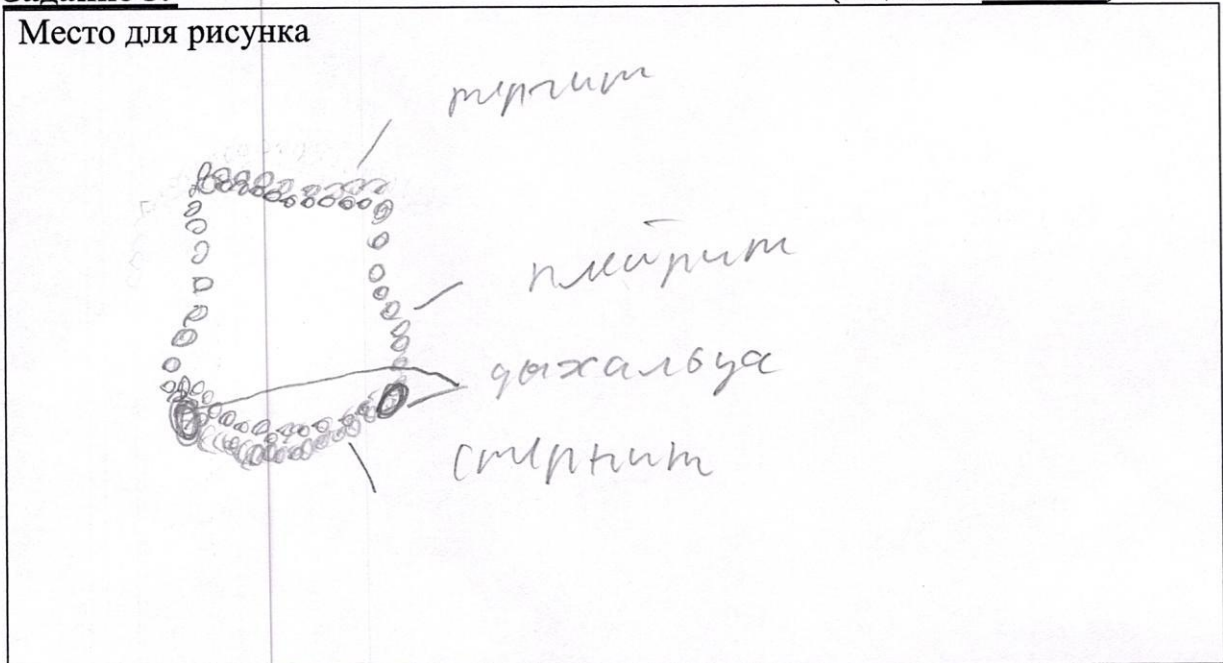 Место для рисунка
тергит
плейрит
дыхальца
стернит